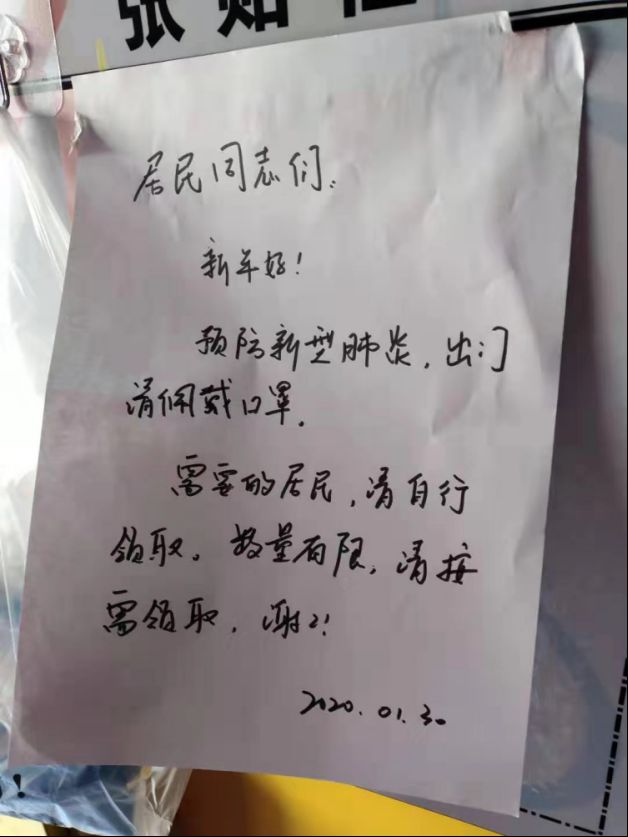 张贴
居民同志们:
新年好!
预防新型肺炎,出门
请佩戴口罩.
需要的居民,请自行
领取。数量有限,请按
需领取,谢〻!
2020.01.30